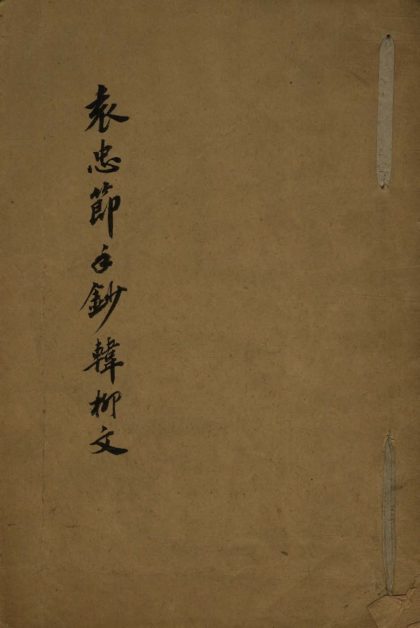 袁忠節手鈔韓柳文